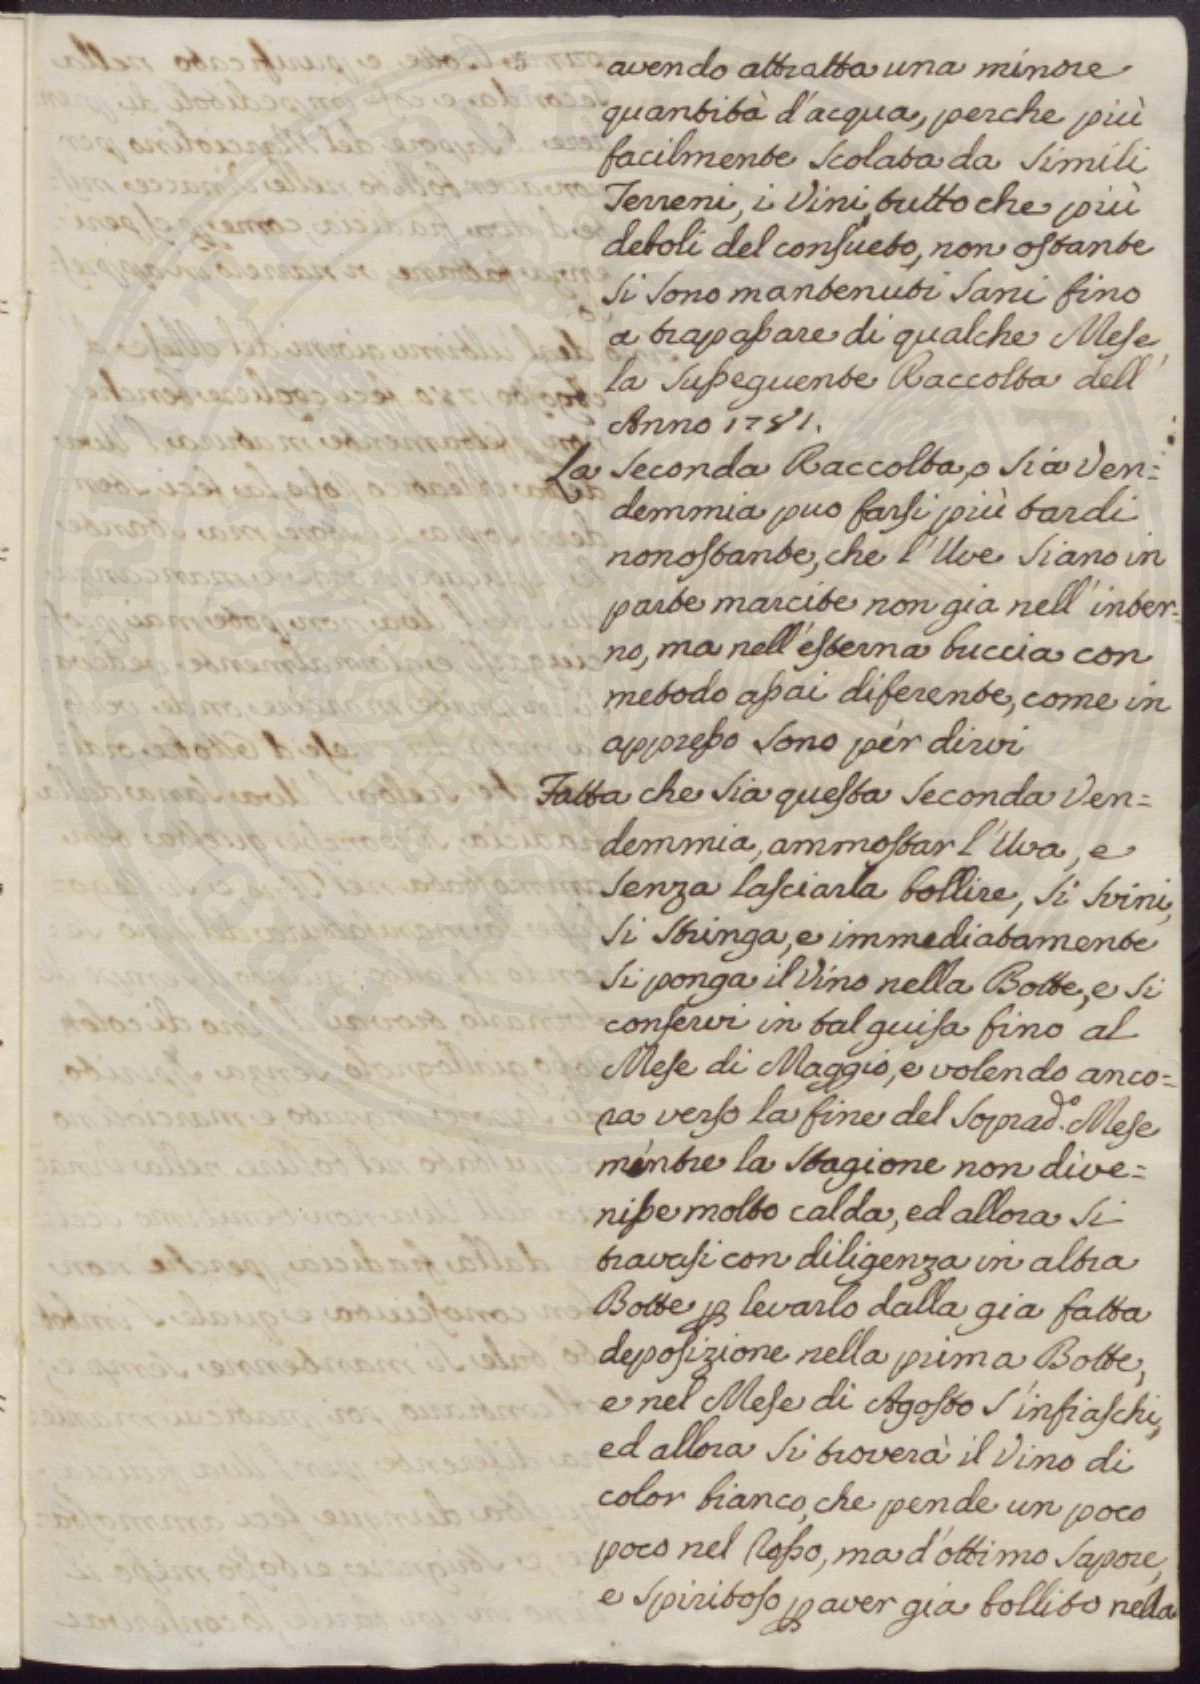 avendo attratta una minore
quantità d'acqua, perche più
facilmente scolata da simili
Terreni, i Vini, tutto che più
deboli del consueto, non ostante
si sono mantenuti sani fino
a trapassare di qualche Mese
la susseguente Raccolta dell'
Anno 1781.
La seconda Raccolta, o sia Ven=
demmia puo farsi più tardi
nonostante, che l'Uve siano in
parte marcite non gia nell'inter=
no, ma nell'esterna buccia con
metodo assai diferente, come in
appresso sono per dirvi
Fatta che sia questa seconda Ven=
demmia, ammostar l'Uva, e
senza lasciarla bollire, si svini,
si stringa, e immediatamente
si ponga il Vino nella Botte, e si
conservi in tal guisa fino al
Mese di Maggio, e volendo anco=
ra verso la fine del soprad.º Mese
mentre la stagione non dive=
nisse molto calda, ed allora si
travasi con diligenza in altra
Botte p levarlo dalla gia fatta
deposizione nella prima Botte,
e nel Mese di Agosto s'infiaschi,
ed allora si troverà il Vino di
color bianco, che pende un poco
poco nel Rosso, ma d'ottimo sapore,
e spiritoso p aver gia bollito nella